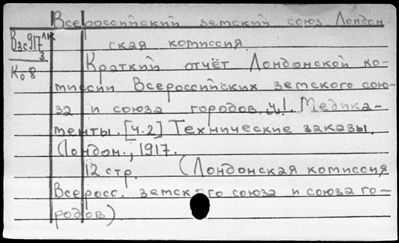 Всероссийский земский союз. Лондон
ская комиссия.
Краткий отчёт Лондонской ко-
миссии Всероссийских земского сою-
за и союза городов. ч.1. Медика-
менты. [ч.2] Технические заказы.
(Лондон., 1917.
12 стр. (Лондонская комиссия
Всеросс. земского союза и союза го-
родов)
Вдс917
3
Ко8